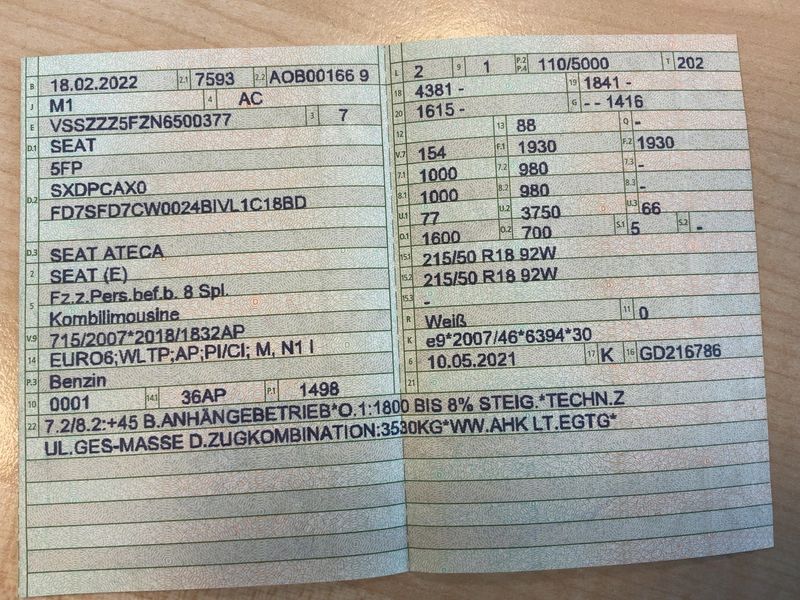 B 18.02.2022 2.1 7593 2.2 AOB00166 9
J M1 4 AC
E VSSZZZ5FZN6500377 3 7
D.1 SEAT
5FP
D.2 SXDPCAX0
FD7SFD7CW0024BIVL1C18BD
D.3 SEAT ATECA
2 SEAT (E)
5 Fz.z.Pers.bef.b. 8 Spl.
Kombilimousine
V.9 715/2007*2018/1832AP
14 EURO6;WLTP;AP;PI/CI; M, N1 I
P.3 Benzin
10 0001 14.1 36AP P.1 1498
L 2 9 1 P.2 P.4 110/5000 T 202
18 4381 - 19 1841 -
20 1615 - G - - 1416
12 13 88 Q -
V.7 154 F.1 1930 F.2 1930
7.1 1000 7.2 980 7.3 -
8.1 1000 8.2 980 8.3 -
U.1 77 U.2 3750 U.3 66
O.1 1600 O.2 700 S.1 5 S.2 -
15.1 215/50 R18 92W
15.2 215/50 R18 92W
15.3 -
R Weiß 11 0
K e9*2007/46*6394*30
6 10.05.2021 17 K 16 GD216786
21
22 7.2/8.2:+45 B.ANHÄNGEBETRIEB*O.1:1800 BIS 8% STEIG.*TECHN.Z
UL.GES-MASSE D.ZUGKOMBINATION:3530KG*WW.AHK LT.EGTG*